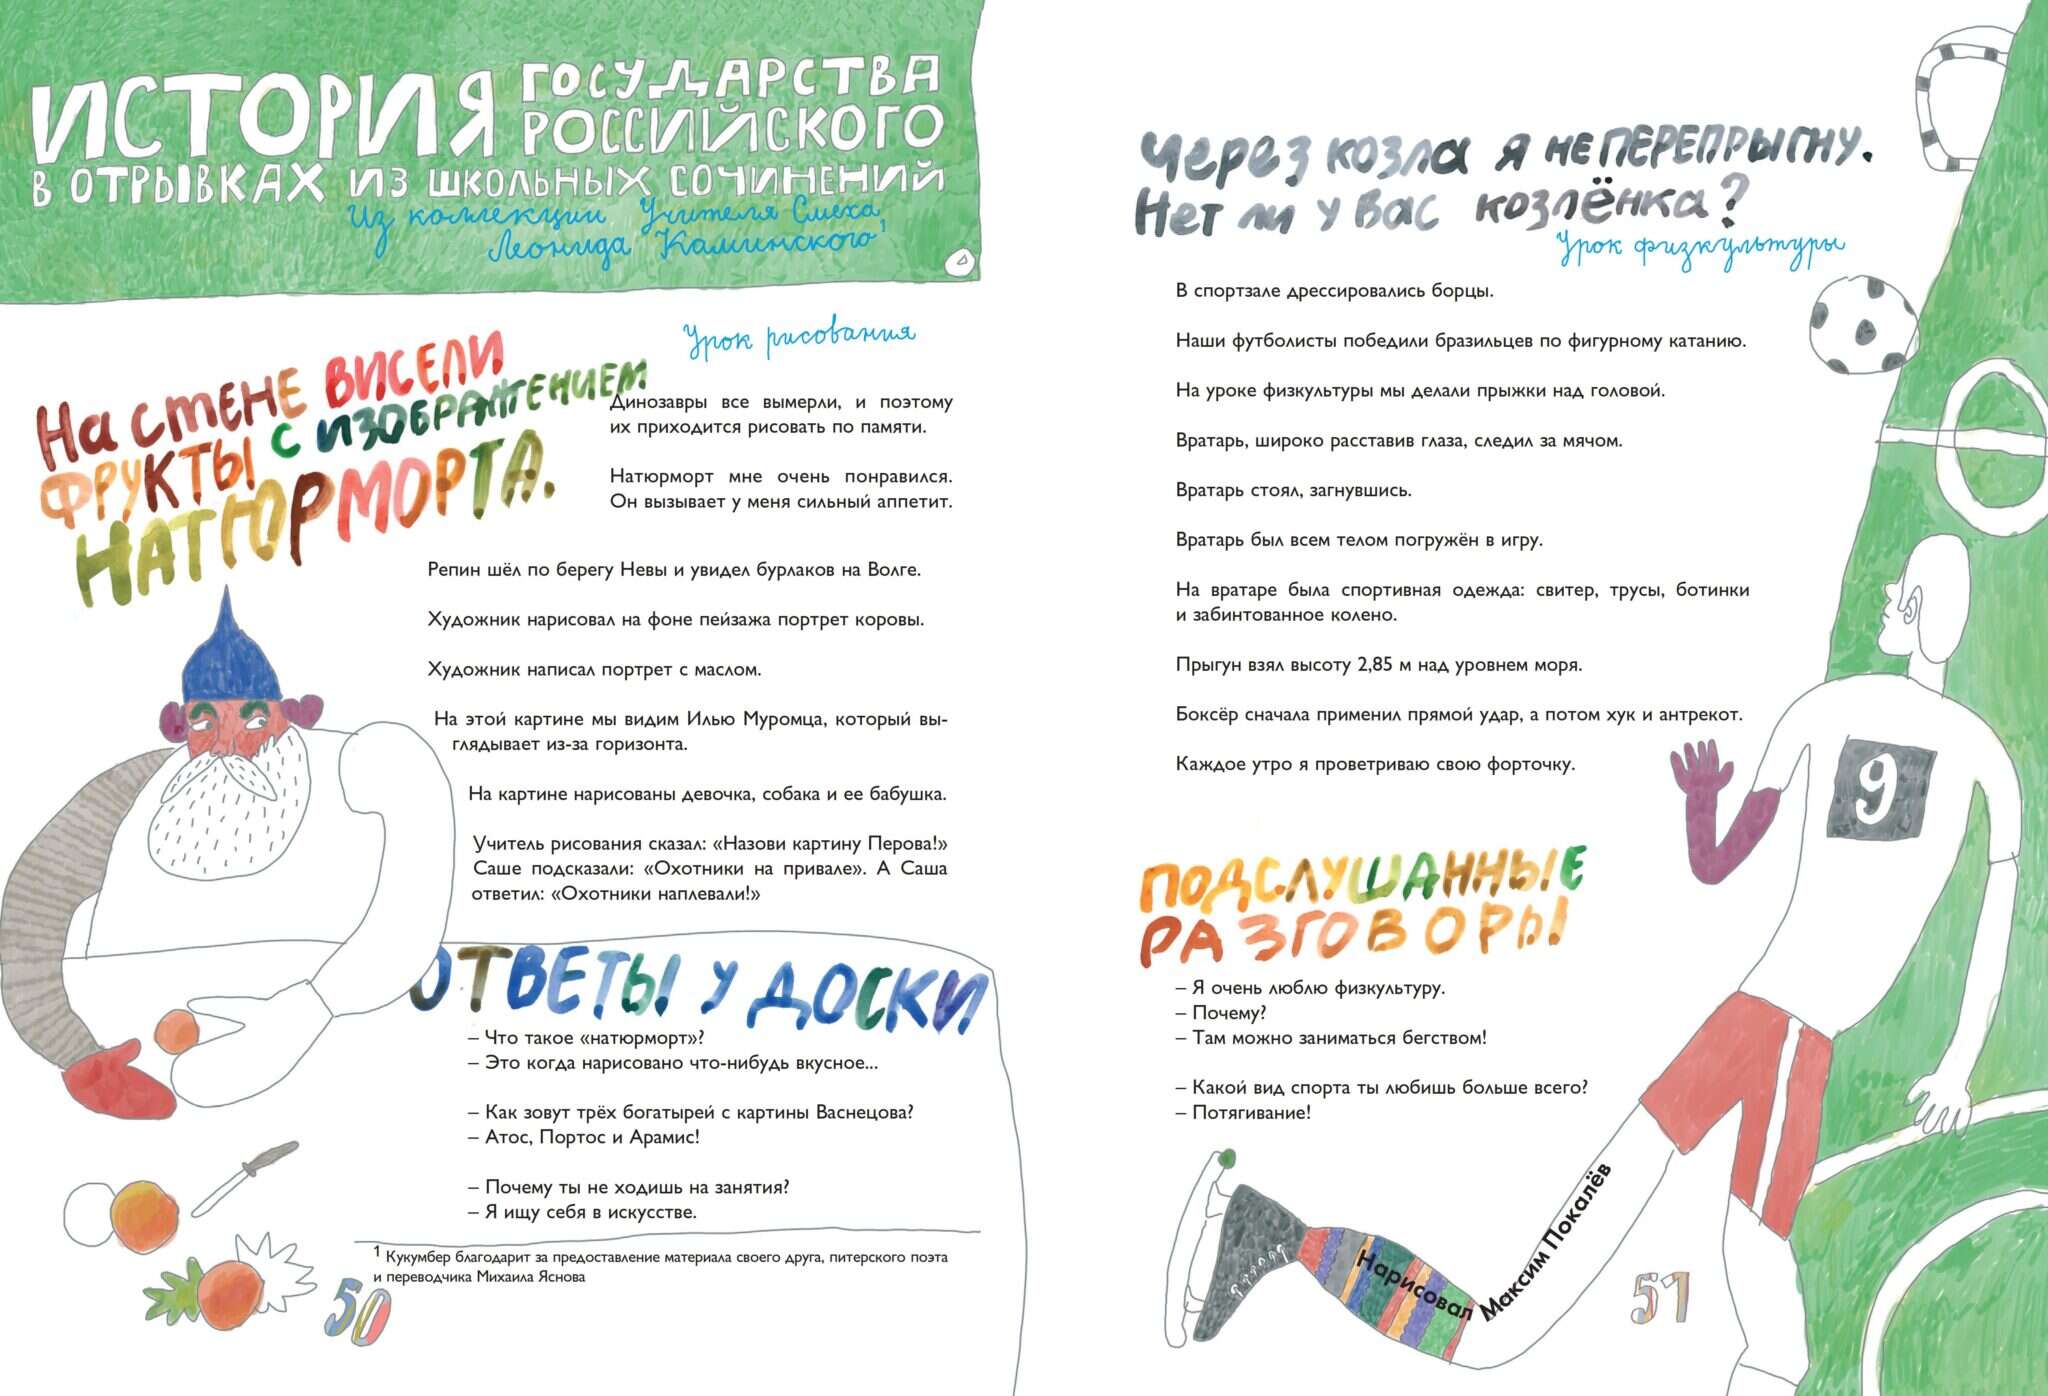 ИСТОРИЯ ГОСУДАРСТВА
РОССИЙСКОГО
В ОТРЫВКАХ ИЗ ШКОЛЬНЫХ СОЧИНЕНИЙ
Из коллекции Учителя Смеха
Леонида Каминского¹
Урок рисования
На СТЕНЕ ВИСЕЛИ
ФРУКТЫ С ИЗОБРАЖЕНИЕМ
НАТЮРМОРТА.
Динозавры все вымерли, и поэтому
их приходится рисовать по памяти.
Натюрморт мне очень понравился.
Он вызывает у меня сильный аппетит.
Репин шёл по берегу Невы и увидел бурлаков на Волге.
Художник нарисовал на фоне пейзажа портрет коровы.
Художник написал портрет с маслом.
На этой картине мы видим Илью Муромца, который вы-
глядывает из-за горизонта.
На картине нарисованы девочка, собака и ее бабушка.
Учитель рисования сказал: «Назови картину Перова!»
Саше подсказали: «Охотники на привале». А Саша
ответил: «Охотники наплевали!»
ОТВЕТЫ У ДОСКИ
– Что такое «натюрморт»?
– Это когда нарисовано что-нибудь вкусное...
– Как зовут трёх богатырей с картины Васнецова?
– Атос, Портос и Арамис!
– Почему ты не ходишь на занятия?
– Я ищу себя в искусстве.
¹ Кукумбер благодарит за предоставление материала своего друга, питерского поэта
и переводчика Михаила Яснова
50
Через козла я не ПЕРЕПРЫГНУ.
Нет ли у вас козлёнка?
Урок физкультуры
В спортзале дрессировались борцы.
Наши футболисты победили бразильцев по фигурному катанию.
На уроке физкультуры мы делали прыжки над головой.
Вратарь, широко расставив глаза, следил за мячом.
Вратарь стоял, загнувшись.
Вратарь был всем телом погружён в игру.
На вратаре была спортивная одежда: свитер, трусы, ботинки
и забинтованное колено.
Прыгун взял высоту 2,85 м над уровнем моря.
Боксёр сначала применил прямой удар, а потом хук и антрекот.
Каждое утро я проветриваю свою форточку.
9
ПОДСЛУШАННЫЕ
РАЗГОВОРЫ
– Я очень люблю физкультуру.
– Почему?
– Там можно заниматься бегством!
– Какой вид спорта ты любишь больше всего?
– Потягивание!
Нарисовал Максим Покалёв
51